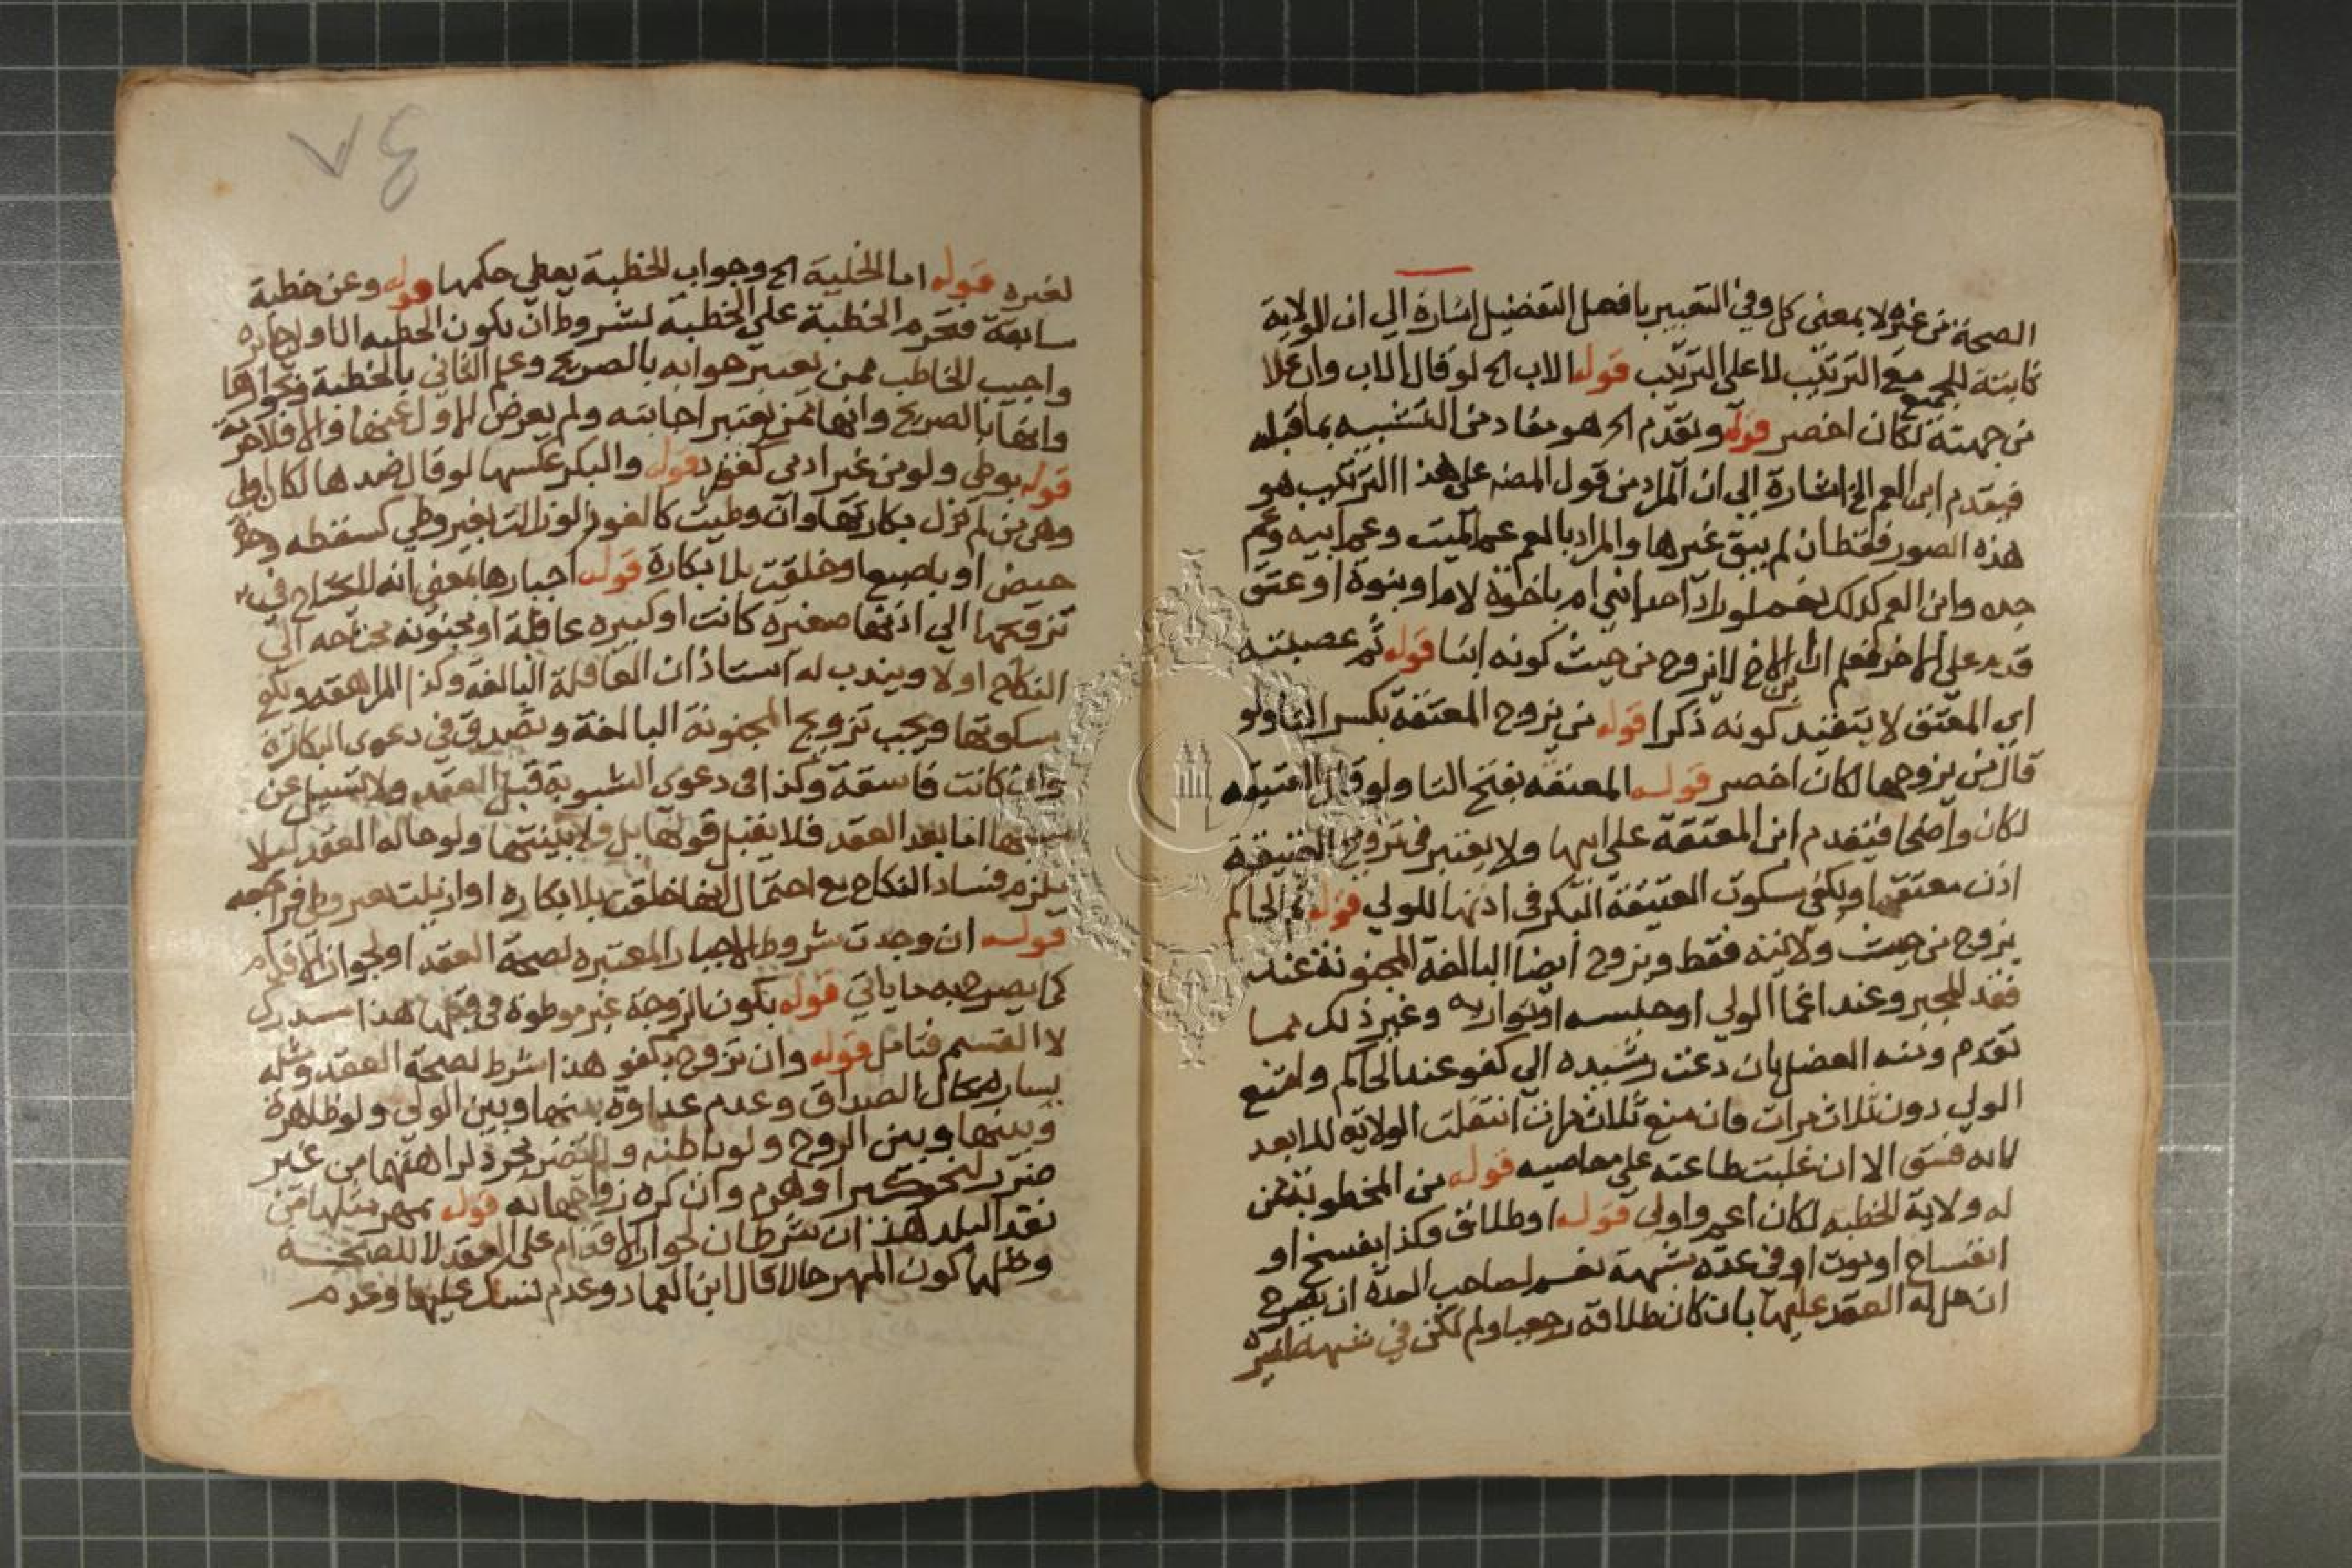 الصحة من غيره لا بمعنى كل وفي التعبير بافعل التفضيل اشارة الي ان الولاية
ثابتة للجميع مع الترتيب لا على الترتيب قوله الاب الخ لو قال الاب وان علا
من جهته لكان اخصر قوله وتقدم الخ هو مفاد من التشبيه بما قبله
فيقدم ابن العم الخ اشارة الي ان المراد من قول المصنف على هذا الترتيب هو
هذه الصور فقط ان لم يبق غيرها والمراد بالعم عم الميت وعم ابيه وعم
جده وابن العم كذلك نعم لو زاد احد ابني ام باخوة لام او بنوة او عتق
قدم على الاخر فعلم ان الابن لا يزوج من حيث كونه ابنا قوله ثم عصبته
اي المعتق لا بتقييد كونه ذكرا قوله من يزوج المعتقة بكسر التا ولو
قال من يزوجها لكان اخصر قوله المعتقه بفتح التا ولو قال العتيقه
لكان واضحا فيقدم ابن المعتقة على ابيها ولا يعتبر في تزويج العتيقة
اذن معتقها ويكفي سكوت العتيقة البكر في اذنها للولي قوله ثم الحاكم
يزوج من حيث ولايته فقط ويزوج ايضا البالغة المجنونة عند
فقد المجبر وعند اغما الولي او حبسه او تواريه وغير ذلك مما
تقدم ومنه العضل بان دعت رشيده الي كفو عند الحاكم وامتنع
الولي دون ثلاث مرات فان منع ثلاث مرات انتقلت الولاية للابعد
لانه فسق الا ان غلبت طاعته على معاصيه قوله من المخطوبة من
له ولاية الخطبه لكان اعم واولى قوله او طلاق وكذا بفسخ او
انفساخ او موت او في عدة شبهة نعم لصاحب العدة ان يصرح
ان حل له العقد عليها بان كان طلاقه رجعيا ولم تكن في شبهة لغيره
٧٤
لغيره قوله اما الخلية الخ وجواب الخطبة يعطي حكمها قوله وعن خطبة
سابقة فتحرم الخطبة على الخطبة لشروط ان تكون الخطبه الاولى جائزه
واجيب الخاطب ممن يعتبر جوابه بالصريح وعلم الثاني بالخطبة وبجوازها
وانها بالصريح وانها ممن تعتبر اجابته ولم يعرض الاول عنها والا فلا حرمة
قوله بوطي ولو من غير ادمي كقرد قوله والبكر عكسها لو قال ضدها لكان اولى
وهي من لم تزل بكارتها وان وطيت كالغورا او زالت بغير وطي كسقطه وحدة
حيض او باصبع او خلقت بلا بكارة قوله اجبارها بمعنى انه لا يحتاج في
تزويجها الي اذنها صغيرة كانت او كبيره عاقلة او مجنونة محتاجه الي
النكاح اولا ويندب له استئذان العاقلة البالغة وكذا المراهقه ويكفي
سكوتها ويجب تزويج المجنونة البالغة وتصدق في دعوى البكارة
وان كانت فاسقة وكذا في دعوى الثيوبة قبل العقد ولا تسيل عن
سببها اما بعد العقد فلا يقبل قولها بل ولا بينتها ولو حاله العقد ليلا
يلزم فساد النكاح مع احتمال انها خلقت بلا بكارة او ازيلت بغير وطي فراجعه
قوله ان وجدت شروط الاجبار المعتبره لصحة العقد او لجواز الاقدام
كما يصرح به ما ياتي قوله بكون الزوجة غير موطوة في قبلها هذا مستدرك
لا القسم فتامل قوله وان تزوج بكفو هذا شرط لصحة العقد ومثله
يساره بحال الصداق وعدم عداوة بينها وبين الولي ولو ظاهرة
وبينها وبين الزوج ولو باطنه ولا تضر مجرد كراهتها من غير
ضرر لنحو كبر او هرم وان كره زواجها له قوله بمهر مثلها من
نقد البلد هذان شرطان لجواز الاقدام على العقد لا للصحة
ومثلها كون المهر حالا قال ابن العماد وعدم نسك عليها وعدم